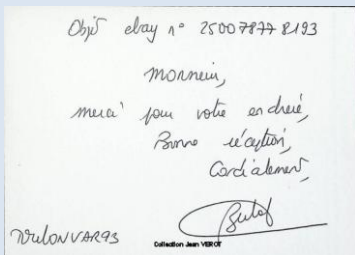 Objet ebay n° 250078778193
Monsieur,
merci pour votre enchère,
Bonne réception,
Cordialement,
TOULONVAR93
Collection Jean VEROT